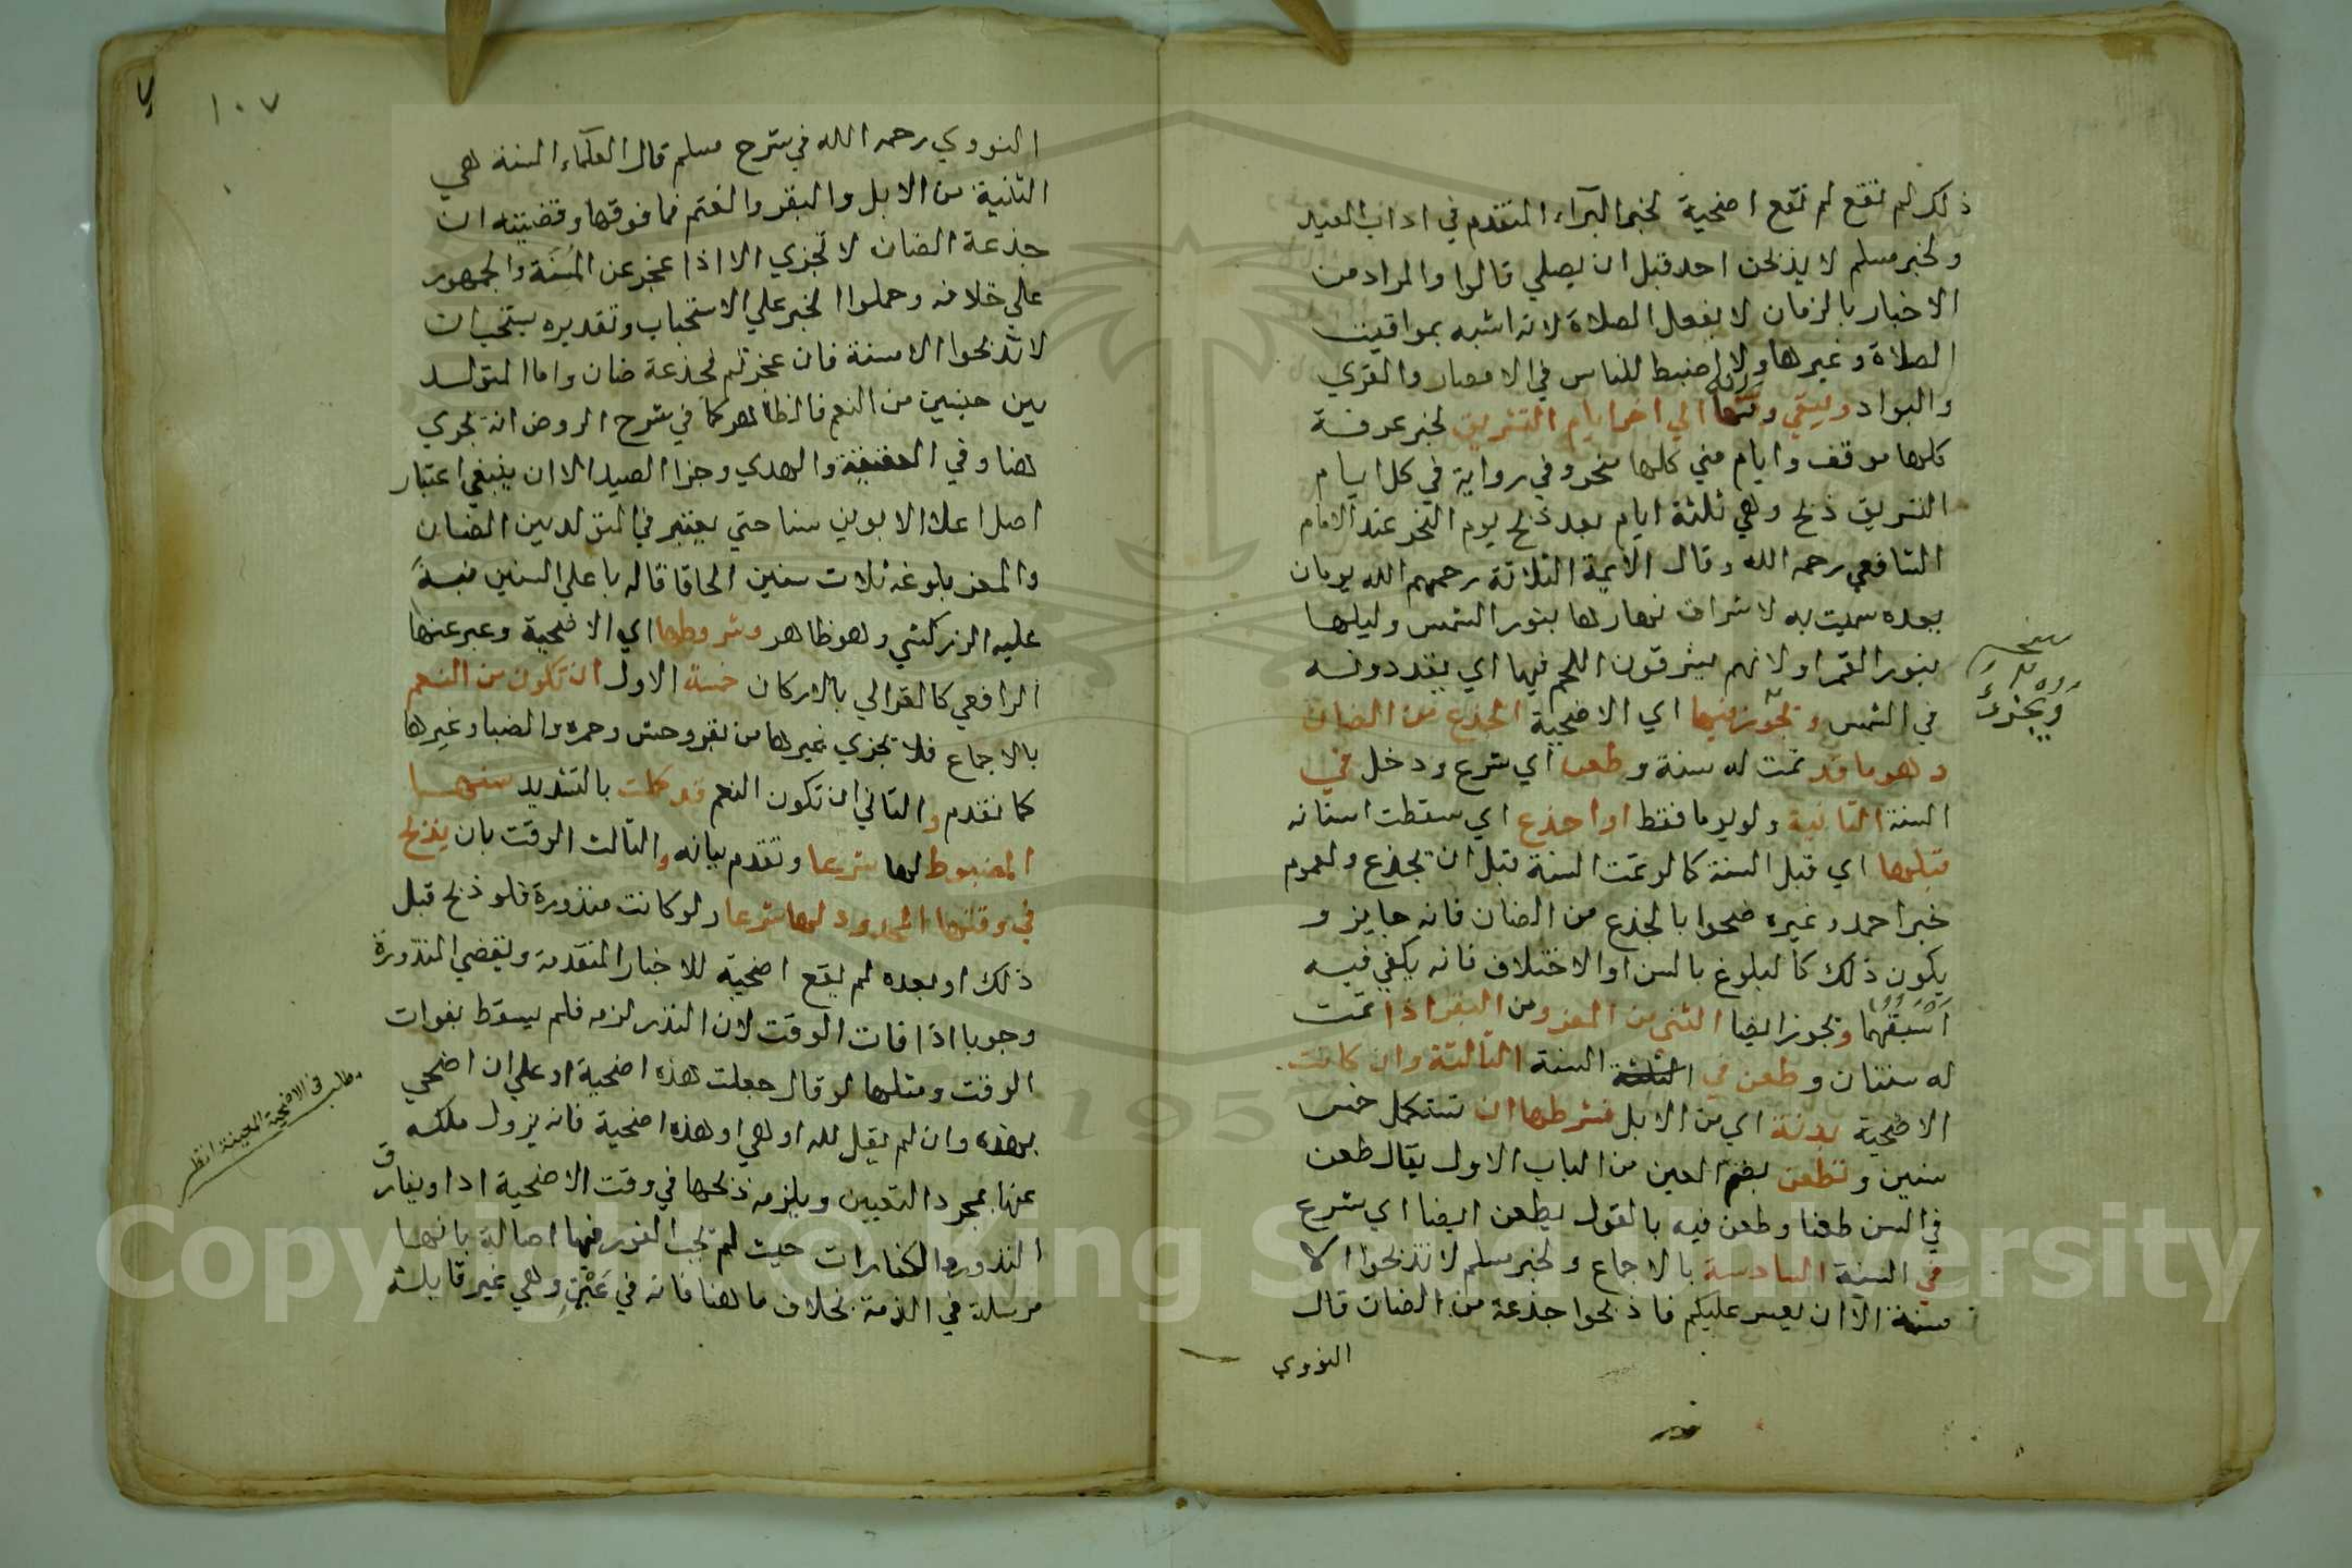 ذلك لم تقع لم تقع اضحية لخبر البراء المتقدم في اداب العيد
ولخبر مسلم لا يذبحن احد قبل ان يصلي قالوا والمراد من
الاخبار بالزمان لا بفعل الصلاة لانه اشبه بمواقيت
الصلاة وغيرها ولانه اضبط للناس في الامصار والقري
والبواد ويبقي وقتها الي اخر ايام التشريق لخبر عرفة
كلها موقف وايام مني كلها منحر وفي رواية في كل ايام
التشريق ذبح وهي ثلثة ايام بعد ذبح يوم النحر عند الامام
الشافعي رحمه الله وقال الائمة الثلاثة رحمهم الله يومان
بعده سميت به لاشراق نهارها بنور الشمس وليلها
بنور القمر او لانهم يشرقون اللحم فيها اي يقددونه
في الشمس وتجوز فيها اي الاضحية الجذع من الضان
وهو ما قد تمت له سنة وطعن اي شرع ودخل في
السنة الثانية ولو يوما فقط او اجذع اي سقطت اسنانه
قبلها اي قبل السنة كما لو تمت السنة قبل ان يجذع ولعموم
خبر احمد وغيره ضحوا بالجذع من الضان فانه جايز و
يكون ذلك كالبلوغ بالسن او الاحتلام فانه يكفي فيه
اسبقهما وتجوز ايضا الثني من المعز ومن البقر اذا تمت
له سنتان وطعن في السنة الثالثة وان كانت
الاضحية بدنة اي من الابل فشرطها ان تستكمل خمس
سنين وتطعن بضم العين من الباب الاول يقال طعن
في السن طعنا وطعن فيه بالقول يطعن ايضا اي شرع
في السنة السادسة بالاجماع ولخبر مسلم لا تذبحوا الا
مسنة الا ان يعسر عليكم فاذبحوا جذعة من الضان قال
النووي
١٠٧
النووي رحمه الله في شرح مسلم قال العلماء المسنة هي
الثانية من الابل والبقر والغنم فما فوقها وقضيته ان
جذعة الضان لا تجزي الا اذا عجز عن المسنة والجمهور
علي خلافه وحملوا الخبر علي الاستحباب وتقديره يستحب ان
لا تذبحوا الا مسنة فان عجزتم فجذعة ضان واما المتولد
بين جنسين من النعم فالظاهر كما في شرح الروض انه يجزي
هنا وفي العقيقة والهدي وجزا الصيد الا ان ينبغي اعتبار
اصل اعلا الابوين سنا حتي يعتبر في المتولد بين الضان
والمعز بلوغه ثلاث سنين الحاقا قاله باعلي السنين منبه
عليه الزركشي وهو ظاهر وشروطها اي الاضحية وعبر عنها
الرافعي كالغزالي بالاركان خمسة الاول ان تكون من النعم
بالاجماع فلا يجزي غيرها من بقر وحش وحمره والضبا وغيرها
كما تقدم والثاني ان تكون النعم قد كملت بالتشديد سنها
المضبوط لها شرعا وتقدم بيانه والثالث الوقت بان يذبح
في وقتها المحدود لها شرعا ولو كانت منذورة فلو ذبح قبل
ذلك او بعده لم يقع اضحية للاخبار المتقدمة ويقضي المنذورة
وجوبا اذا فات الوقت لان النذر لزمه فلم يسقط بفوات
الوقت ومثلها لو قال جعلت هذه اضحية او علي ان اضحي
بهذه وان لم يقل لله او هي او هذه اضحية فانه يزول ملكه
عنها بمجرد التعيين ويلزمه ذبحها في وقت الاضحية ادا ويفارق
النذور والكفارات حيث لم يجب الفور فيها اصالة بانها
مرسلة في الذمة بخلاف ما هنا فانه في عين وهي غير قابلة
مطلب في الاضحية المعينة انظر
Copyright © King Saud University
195